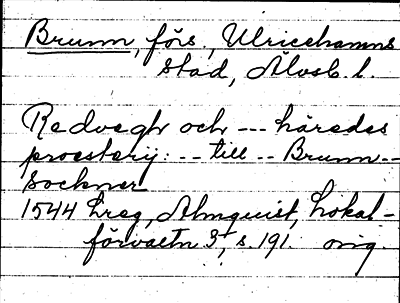 Brunn, förs., Ulricehamns
stad, Älvsb. l.
Redvegh och --- häredes
proesterij: -- till -- Brunn --
Sockner
1544 Lreg, Almquist, Lokal-
förvaltn 3, s. 191. orig.